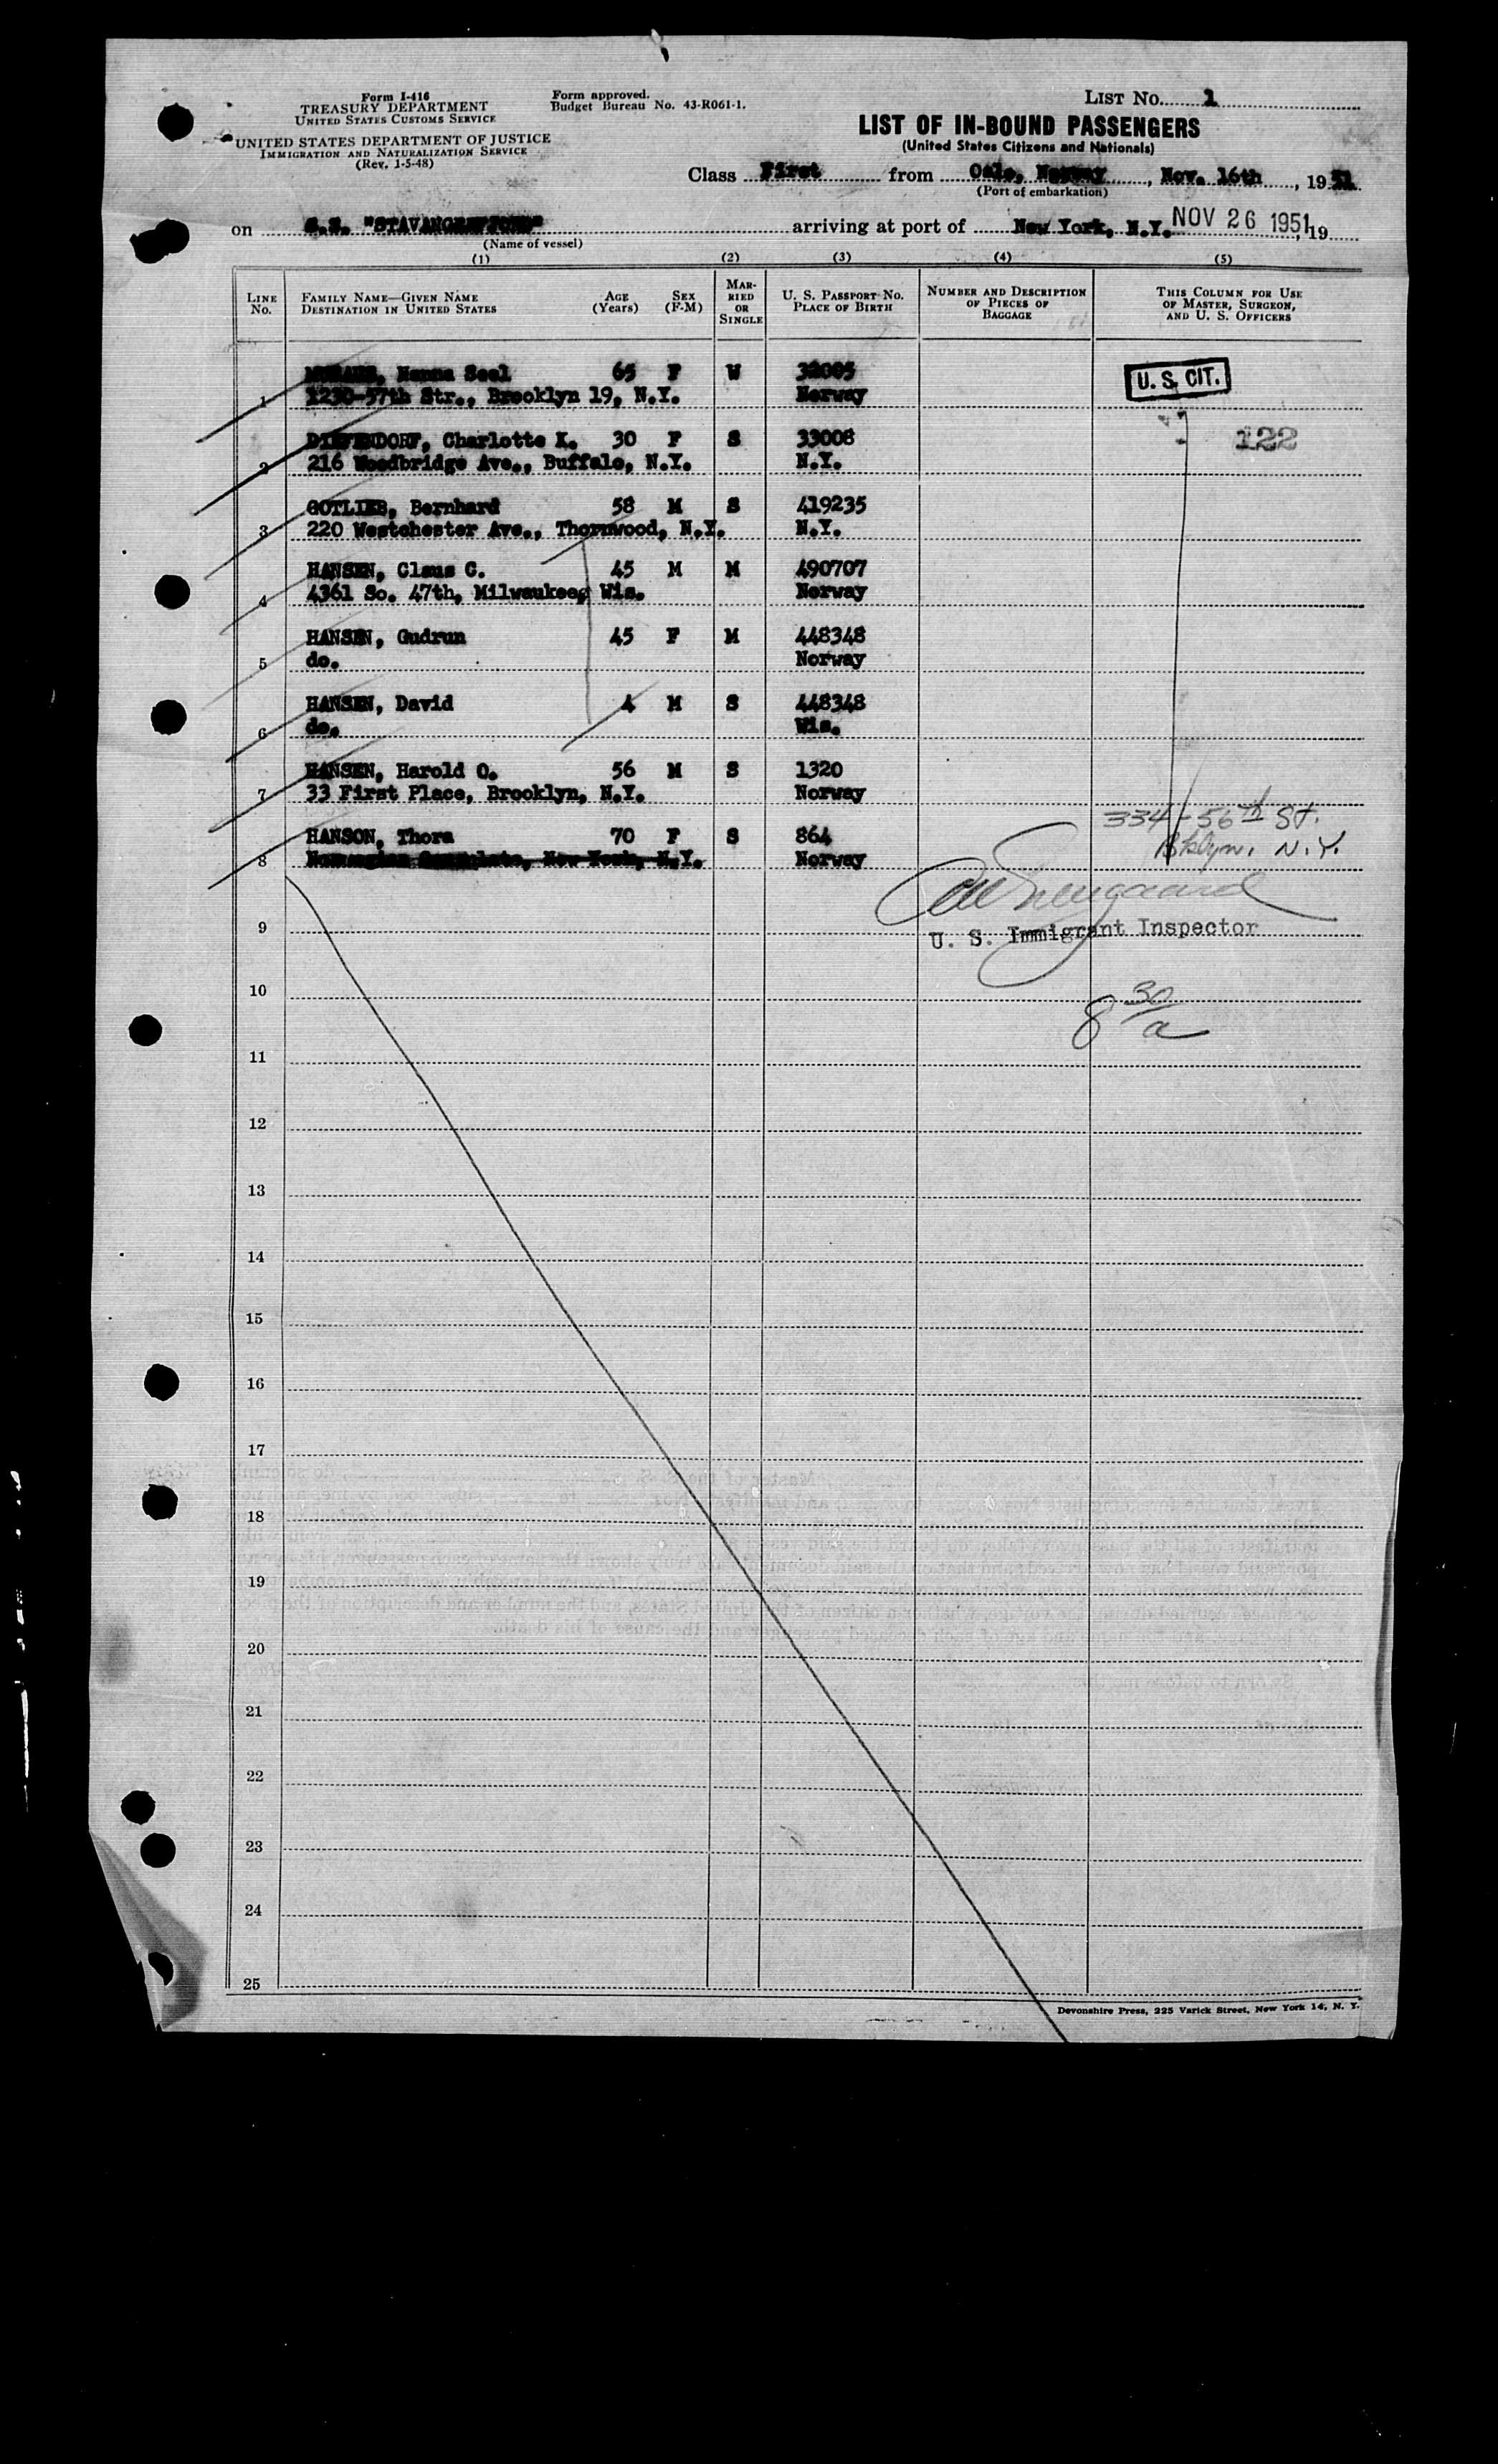 Form I-416
TREASURY DEPARTMENT
UNITED STATES CUSTOMS SERVICE
UNITED STATES DEPARTMENT OF JUSTICE
IMMIGRATION AND NATURALIZATION SERVICE
(Rev. 1-5-48)
Form approved.
Budget Bureau No. 43-R061-1.
LIST No. 1
LIST OF IN-BOUND PASSENGERS
(United States Citizens and Nationals)
Class First from Oslo, Norway, Nov. 16th, 1951
(Port of embarkation)
on S.S. "STAVANGERFJORD" arriving at port of New York, N.Y. NOV 26 1951, 19
(Name of vessel)
(1) (2) (3) (4) (5)
LINE No. FAMILY NAME—GIVEN NAME DESTINATION IN UNITED STATES AGE (Years) SEX (F-M) MARRIED OR SINGLE U. S. PASSPORT NO. PLACE OF BIRTH NUMBER AND DESCRIPTION OF PIECES OF BAGGAGE THIS COLUMN FOR USE OF MASTER, SURGEON, AND U. S. OFFICERS
Hanna Seel 65 F W 32005 U. S. CIT.
1 1230-57th Str., Brooklyn 19, N.Y. Norway
DIEFENDORF, Charlotte K. 30 F S 33008 122
2 216 Woodbridge Ave., Buffalo, N.Y. N.Y.
GOTLIEB, Bernhard 58 M S 419235
3 220 Westchester Ave., Thornwood, N.Y. N.Y.
HANSEN, Claus C. 45 M M 490707
4 4361 So. 47th, Milwaukee, Wis. Norway
HANSEN, Gudrun 45 F M 448348
5 do. Norway
HANSEN, David 4 M S 448348
6 do. Wis.
HANSEN, Harold O. 56 M S 1320
7 33 First Place, Brooklyn, N.Y. Norway
334-56th St.
HANSON, Thora 70 F S 864
Bklyn. N.Y.
8 Norwegian Consulate, New York, N.Y. Norway
9 U. S. Immigrant Inspector
10
8 30/a
11
12
13
14
15
16
17
18
19
20
21
22
23
24
25
Devonshire Press, 225 Varick Street, New York 14, N. Y.